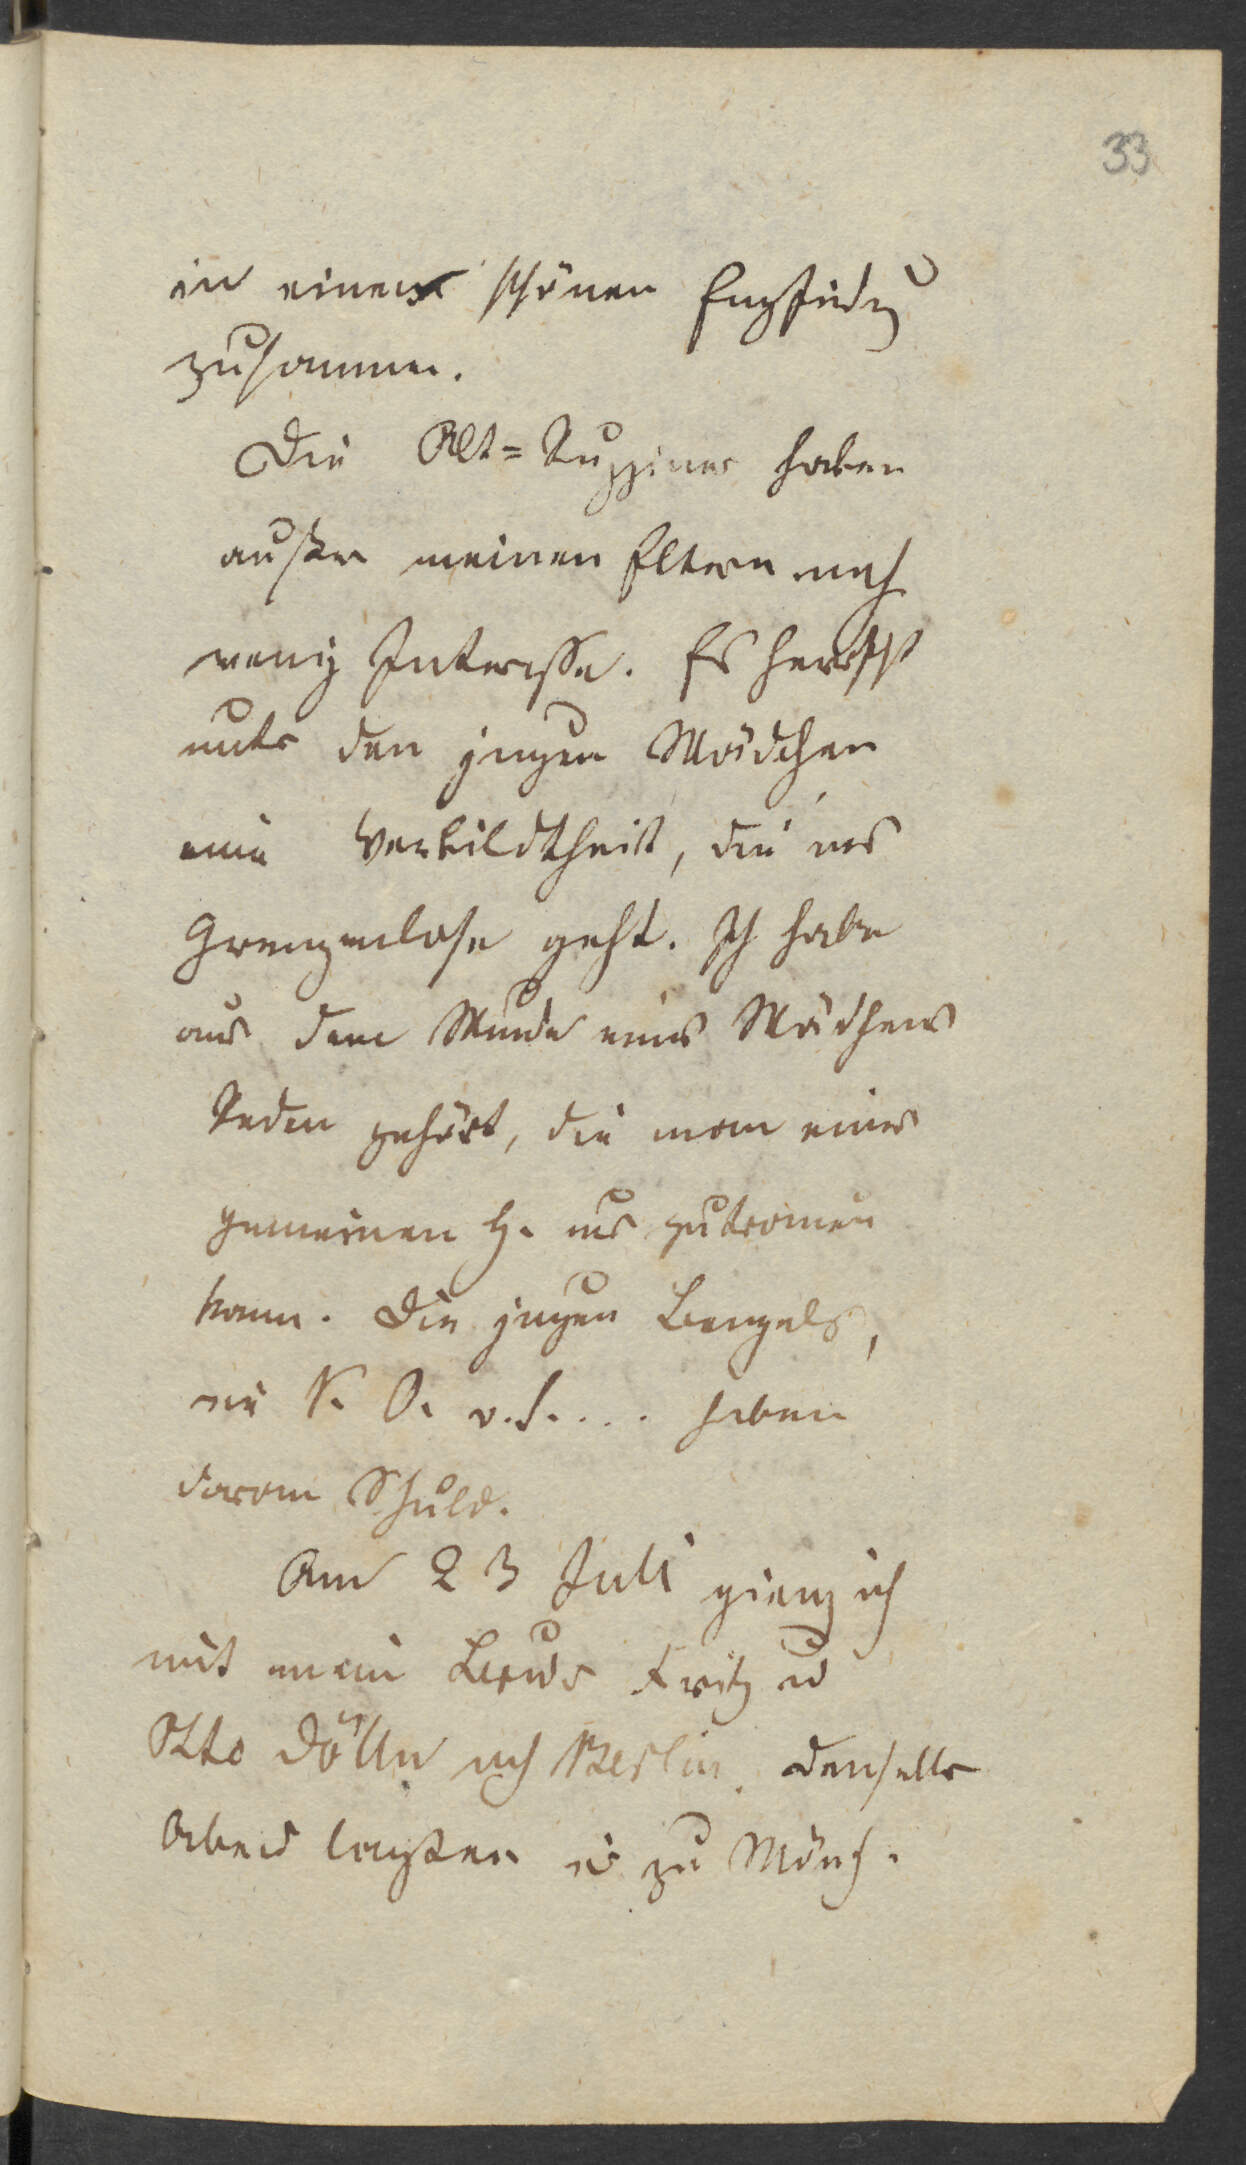 33
in einer schönen Empfindg
zusammen.
Die Alt=Ruppiner haben
außer meinen Eltern noch
wenig Interesse. Es herrscht
unter den jungen Mädchen
eine Verbildtheit, die ins
Grenzenlose geht. Ich habe
aus dem Munde eines Mädchens
Reden gehört, die man einer
gemeinen H. nur zutrauen
kann. Die jungen Bengels,
wie K. O. v. S.... haben
daran Schuld.
Am 23 Juli gieng ich
mit mein Brudr Fritz u
Otto Dölln nch Berlin. denselbn
Abend langten wir zu